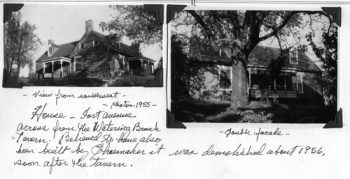 - View from southwest -
- Photos 1955 -
- South facade -
House - Fort avenue
across from the Watering Branch
Tavern. Believed to have also
been built by Shoemaker it was demolished about 1956,
soon after the tavern.